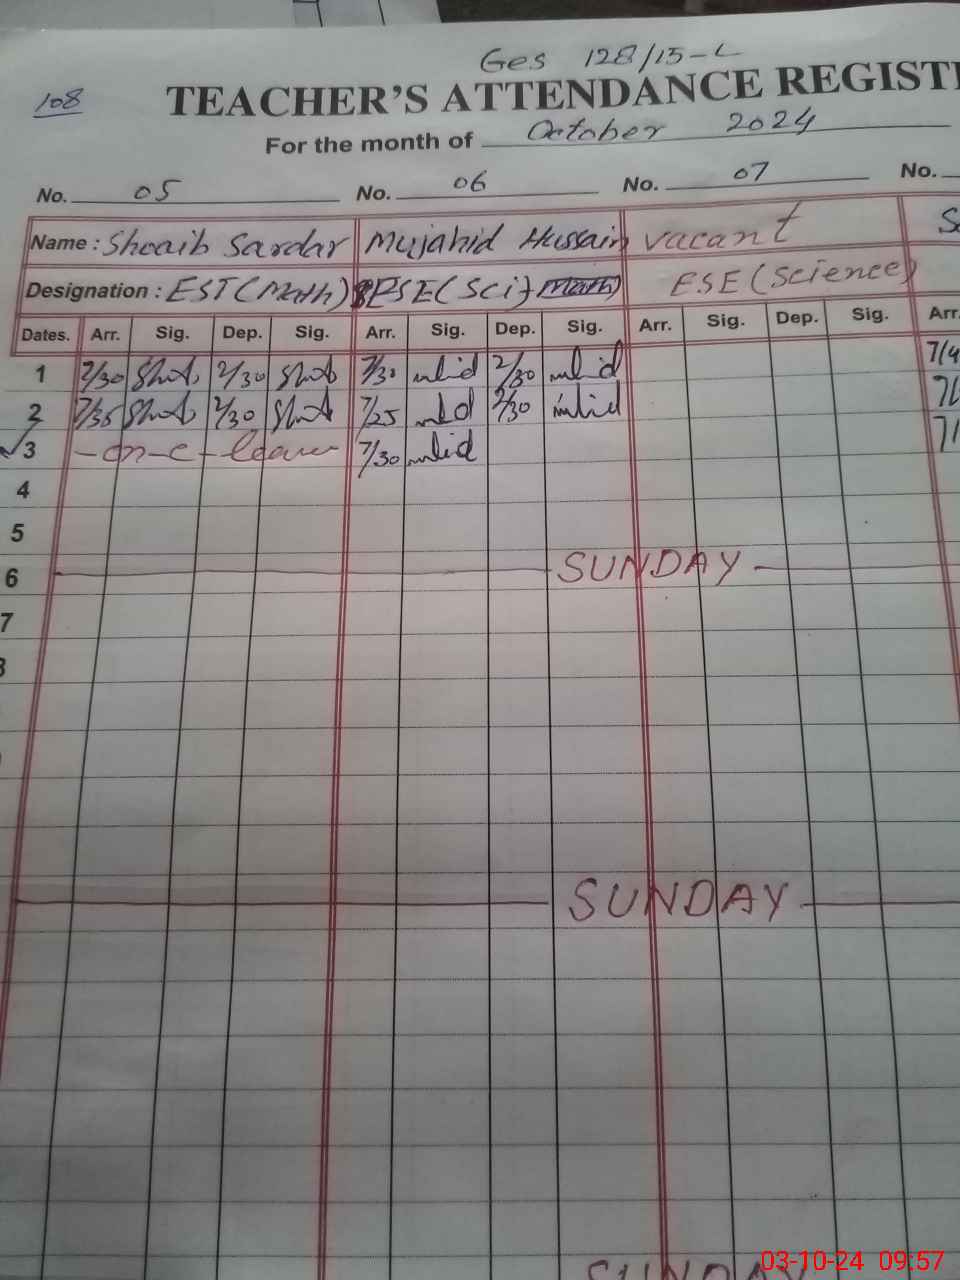 Ges 128/15-L
108 TEACHER'S ATTENDANCE REGISTE
For the month of October 2024
No. 05 No. 06 No. 07 No.
Name : Shoaib Sardar Mujahid Hussain vacant S
Designation : EST (Math) PSE (Sci) math) ESE (Science)
Dates. Arr. Sig. Dep. Sig. Arr. Sig. Dep. Sig. Arr. Sig. Dep. Sig. Arr.
1 7/30 2/30 7/30 2/30 7/4
2 7/35 2/30 7/25 2/30 7/
3 -on-c-leave 7/30 7/
4
5
6 SUNDAY
7
8
SUNDAY
SUNDAY
03-10-24 09:57